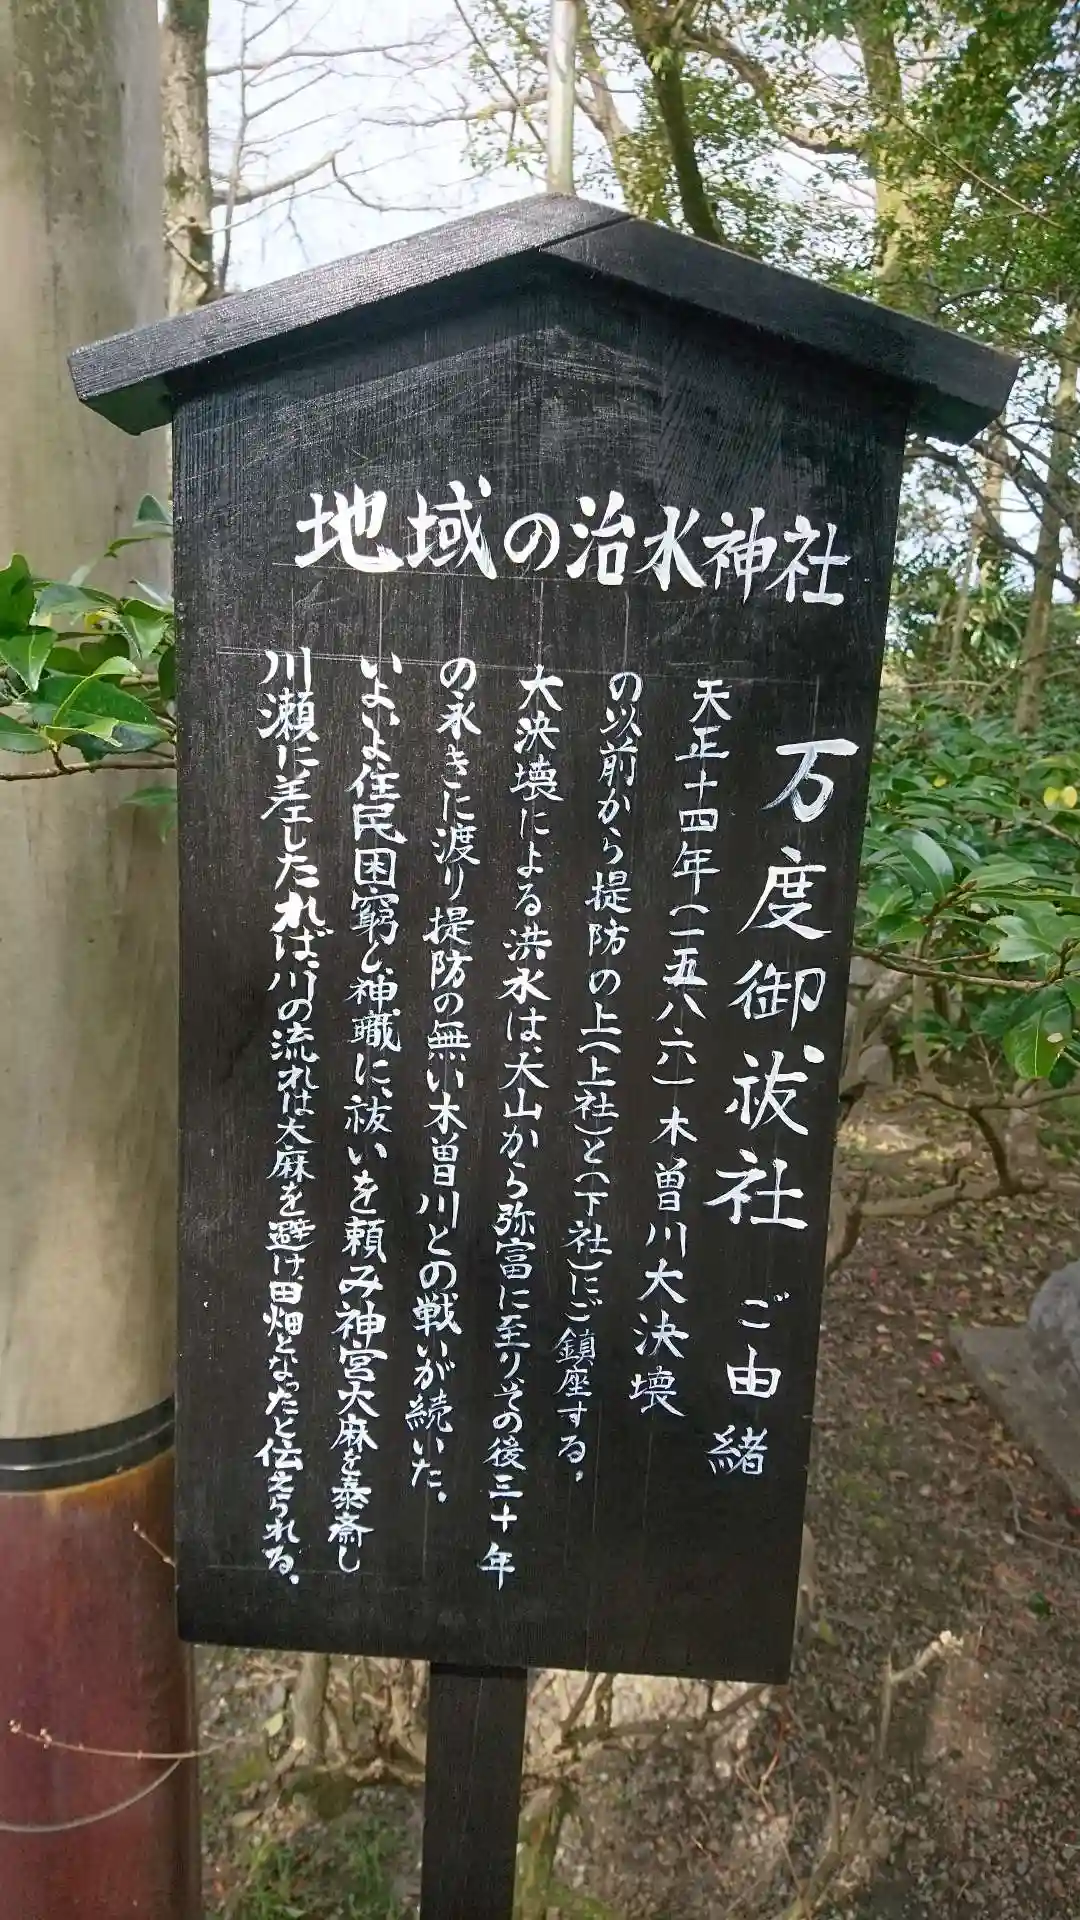 地域の治水神社
万度御祓社 ご由緒
天正十四年(一五八六)木曽川大決壊
の以前から堤防の上(上社)と(下社)にご鎮座する。
大決壊による洪水は、犬山から弥富に至りその後三十年
の永きに渡り堤防の無い木曽川との戦いが続いた。
いよいよ住民困窮し、神職に、祓いを頼み神宮大麻を奏斎し
川瀬に差したれば、川の流れは大麻を避け、田畑となったと伝えられる。